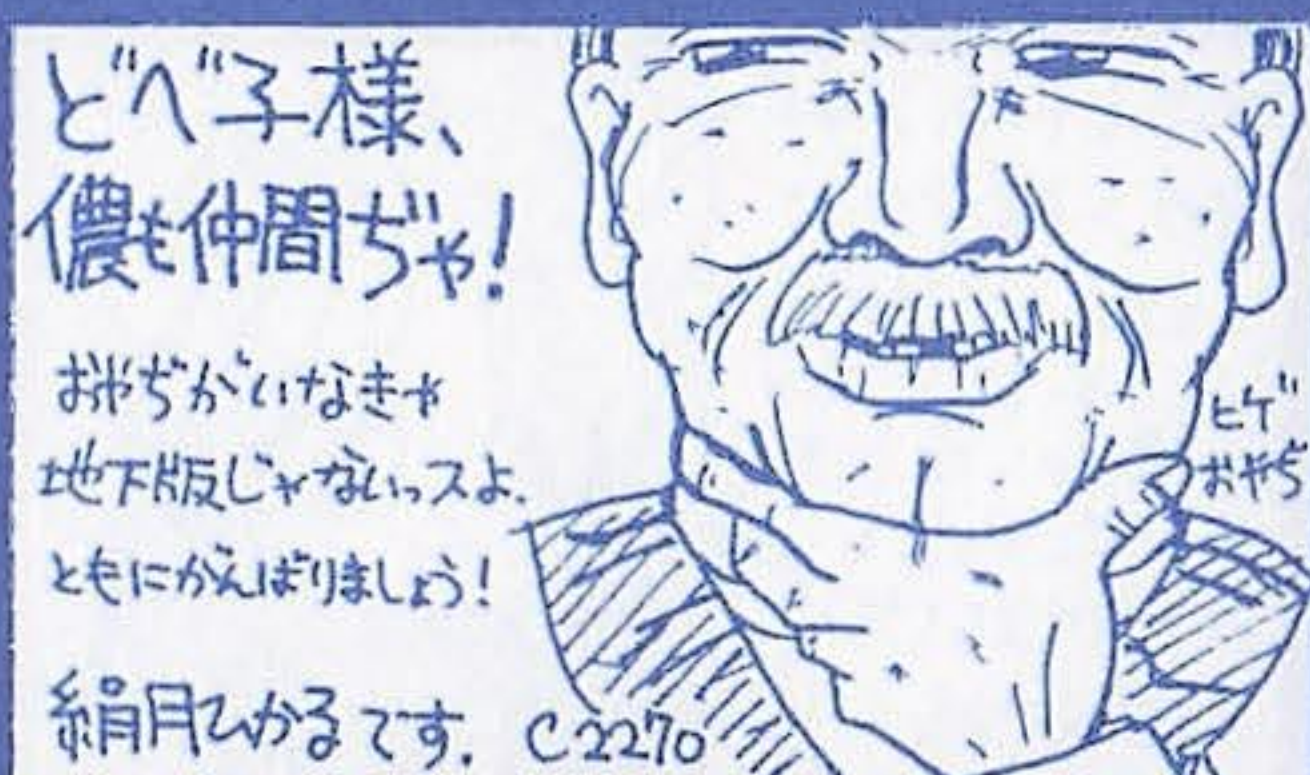 どべ子様、
儂も仲間ぢゃ!
おやぢがいなきゃ
地下版じゃないっスよ.
ともにがんばりましょう!
絹月ひかるです. C2270
ヒゲ
おやぢ